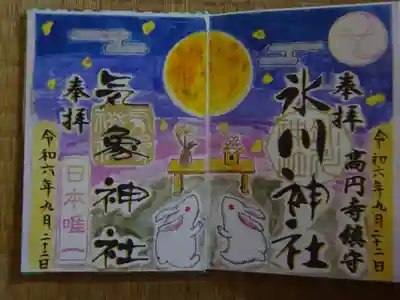 奉拝
氷川神社
高円寺鎮守
令和六年九月二十二日
奉拝
気象神社
日本唯一
令和六年九月二十二日